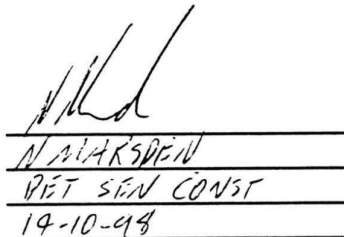 N MARSDEN
DET SEN CONST
19-10-98